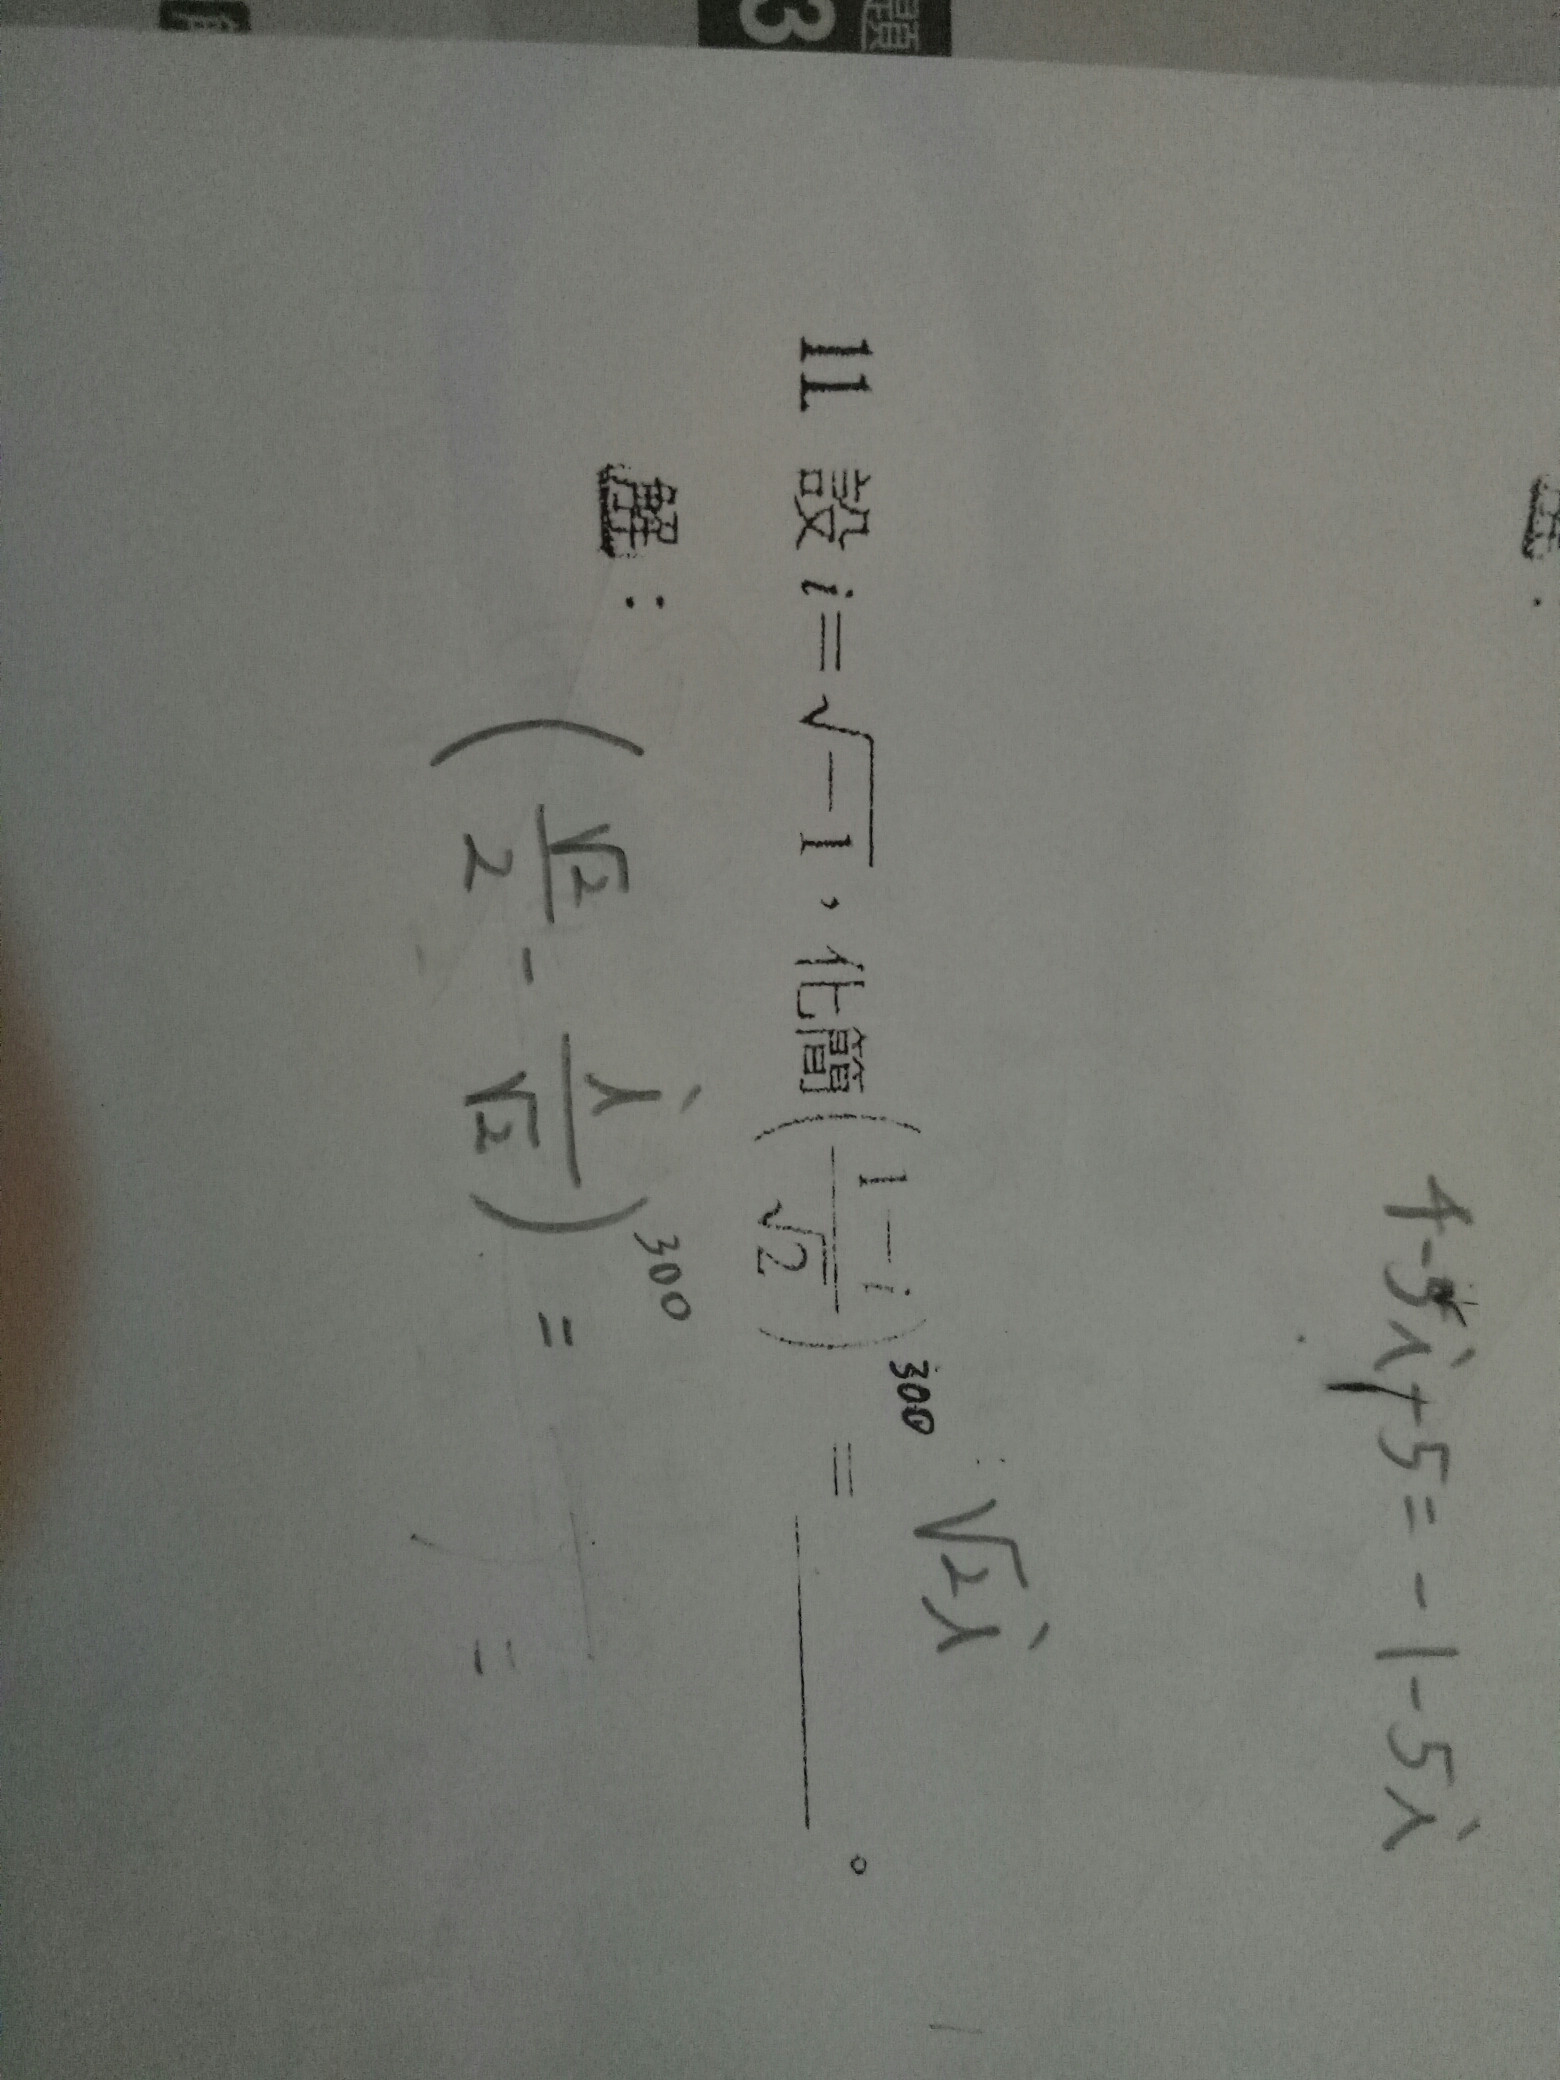 題 3
4-5i+5=-1-5i
√2i
11 設 i=√-1，化簡(1-i/√2)^300 = ______。
解：
(√2/2 - i/√2)^300 =
=